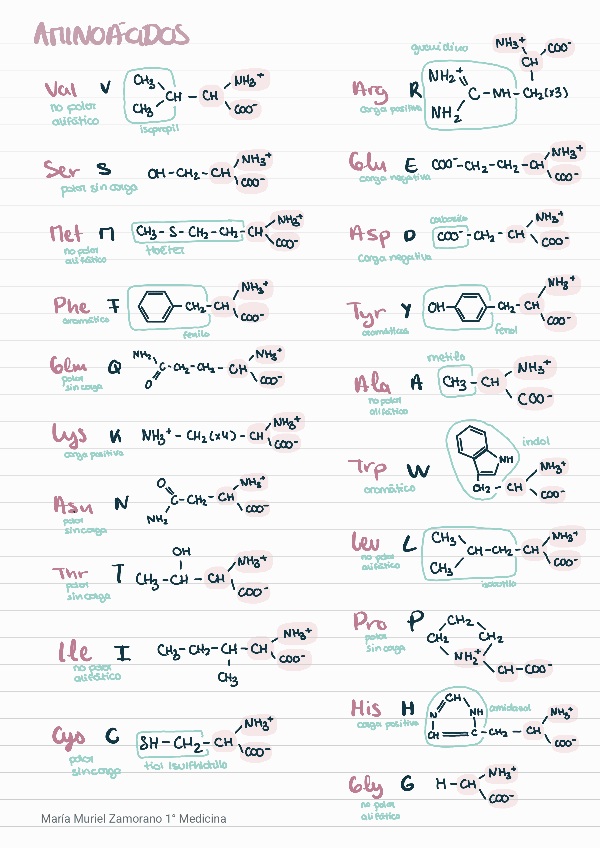 AMINOÁCIDOS
Val V
no polar
alifático
CH₃
CH₃
CH - CH
NH₃⁺
COO⁻
isopropil
Ser S
polar sin carga
OH - CH₂ - CH
NH₃⁺
COO⁻
Met M
no polar
alifático
CH₃ - S - CH₂ - CH₂ - CH
NH₃⁺
COO⁻
Phe F
aromático
CH₂ - CH
NH₃⁺
COO⁻
fenilo
Glm Q
polar
sin carga
NH₂
O
C - CH₂ - CH₂ - CH
NH₃⁺
COO⁻
Lys K
carga positiva
NH₃⁺ - CH₂ (x4) - CH
NH₃⁺
COO⁻
Asn N
polar
sin carga
O
NH₂
C - CH₂ - CH
NH₃⁺
COO⁻
Thr T
polar
sin carga
OH
CH₃ - CH - CH
NH₃⁺
COO⁻
Ile I
no polar
alifático
CH₃ - CH₂ - CH - CH
CH₃
NH₃⁺
COO⁻
Cys C
polar
sin carga
SH - CH₂ - CH
NH₃⁺
COO⁻
tiol | sulfhidrilo
María Muriel Zamorano 1° Medicina
guanidino
Arg R
carga positiva
NH₂⁺
NH₂
C - NH - CH₂ (x3)
CH
NH₃⁺
COO⁻
Glu E
carga negativa
COO⁻ - CH₂ - CH₂ - CH
NH₃⁺
COO⁻
Asp D
carga negativa
carboxilo
COO⁻ - CH₂ - CH
NH₃⁺
COO⁻
Tyr Y
aromáticos
OH
CH₂ - CH
NH₃⁺
COO⁻
fenol
metilo
Ala A
no polar
alifático
CH₃ - CH
NH₃⁺
COO⁻
Trp W
aromático
indol
NH
CH₂ - CH
NH₃⁺
COO⁻
Leu L
no polar
alifático
CH₃
CH₃
CH - CH₂ - CH
NH₃⁺
COO⁻
isobutilo
Pro P
polar
sin carga
CH₂
CH₂
CH₂
NH₂⁺
CH - COO⁻
His H
carga positiva
CH
N
NH
CH
C - CH₂ - CH
NH₃⁺
COO⁻
imidazol
Gly G
no polar
alifático
H - CH
NH₃⁺
COO⁻